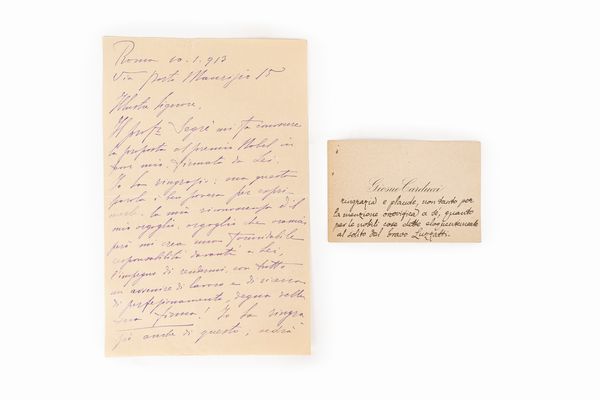 Roma 10.1.913
Via Porto Maurizio 15
Illustre Signore,
Il prof. Segrè mi fa conoscere
la proposta al premio Nobel in
favor mio, firmata da Lei.
Io La ringrazio: ma questa
parola è ben povera per espri-
merle la mia riconoscenza ed il
mio orgoglio, orgoglio che
però mi crea una formidabile
responsabilità davanti a Lei,
l'impegno di rendermi, con tutto
un avvenire di lavoro e di ricerca
di perfezionamento, degna della
Sua firma! Io La ringra
zio anche di questo, vedrà
Giosue Carducci
ringrazia e plaude, non tanto per
la menzione onorifica a sé, quanto
per le nobili cose dette eloquentemente
al solito dal bravo Luzzatti.